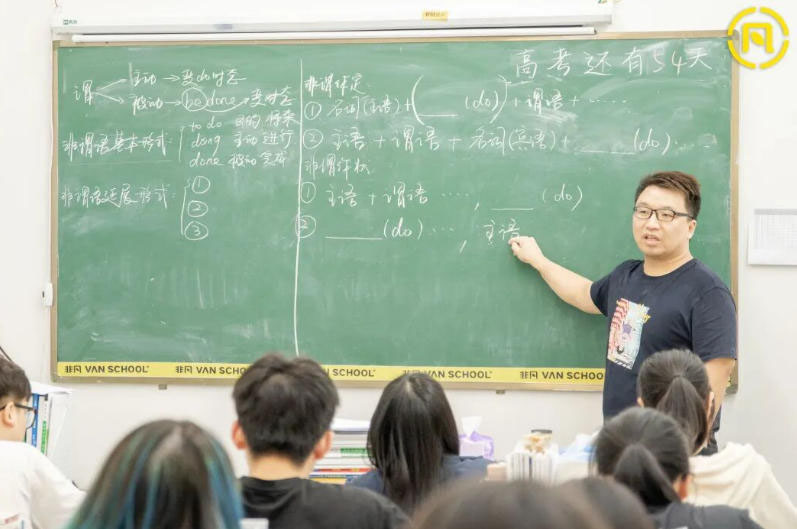 高考还有54天
谓
主动→变do时态
被动→be done→变时态
非谓语基本形式:
to do 目的 将来
doing 主动 进行
done 被动 完成
非谓语进展形式:
①
②
③
非谓作定
① 名词(主语)+(____(do))+谓语+……
② 主语+谓语+名词(宾语)+____(do)…
非谓作状
① 主语+谓语……,____(do)
② ____(do)…,主语
非凡 VAN SCHOOL 非凡 VAN SCHOOL 非凡 VAN SCHOOL 非凡 VAN SCHOO